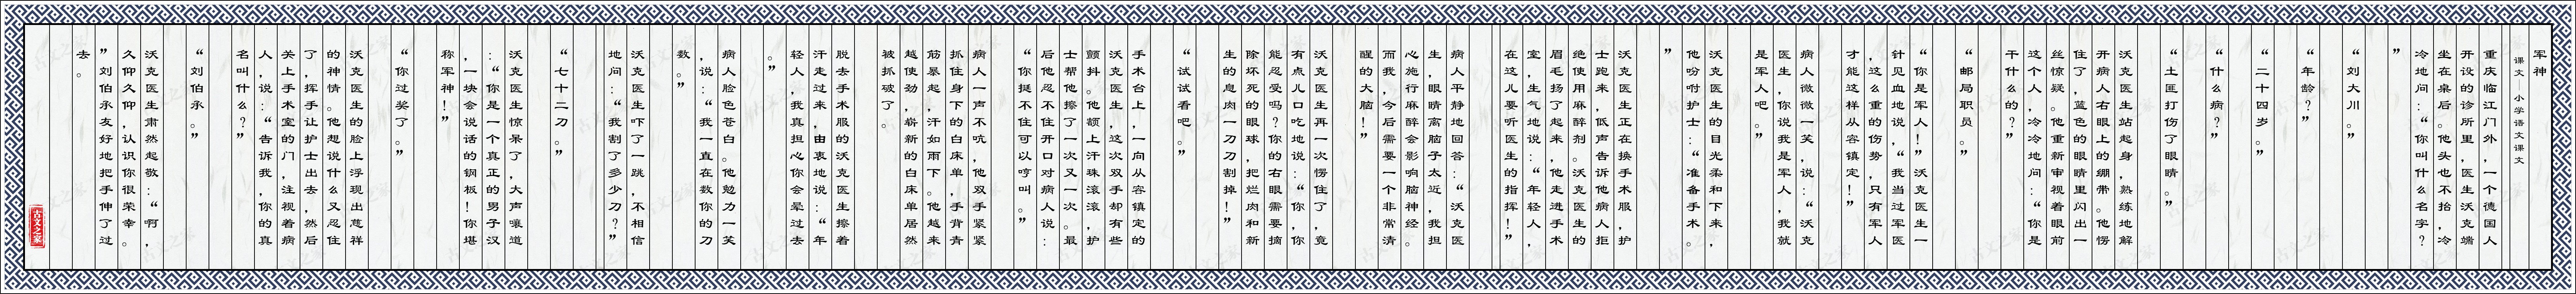 军神
课文—小学语文课文
重庆临江门外，一个德国人
开设的诊所里，医生沃克端
坐在桌后。他头也不抬，冷
冷地问：“你叫什么名字？
”
“刘大川。”
“年龄？”
“二十四岁。”
“什么病？”
“土匪打伤了眼睛。”
沃克医生站起身，熟练地解
开病人右眼上的绷带。他愣
住了，蓝色的眼睛里闪出一
丝惊疑。他重新审视着眼前
这个人，冷冷地问：“你是
干什么的？”
“邮局职员。”
“你是军人！”沃克医生一
针见血地说，“我当过军医
，这么重的伤势，只有军人
才能这样从容镇定！”
病人微微一笑，说：“沃克
医生，你说我是军人，我就
是军人吧。”
沃克医生的目光柔和下来，
他吩咐护士：“准备手术。
”
沃克医生正在换手术服，护
士跑来，低声告诉他病人拒
绝使用麻醉剂。沃克医生的
眉毛扬了起来，他走进手术
室，生气地说：“年轻人，
在这儿要听医生的指挥！”
病人平静地回答：“沃克医
生，眼睛离脑子太近，我担
心施行麻醉会影响脑神经。
而我，今后需要一个非常清
醒的大脑！”
沃克医生再一次愣住了，竟
有点儿口吃地说：“你，你
能忍受吗？你的右眼需要摘
除坏死的眼球，把烂肉和新
生的息肉一刀刀割掉！”
“试试看吧。”
手术台上，一向从容镇定的
沃克医生，这次双手却有些
颤抖。他额上汗珠滚滚，护
士帮他擦了一次又一次。最
后他忍不住开口对病人说：
“你挺不住可以哼叫。”
病人一声不吭，他双手紧紧
抓住身下的白床单，手背青
筋暴起，汗如雨下。他越来
越使劲，崭新的白床单居然
被抓破了。
脱去手术服的沃克医生擦着
汗走过来，由衷地说：“年
轻人，我真担心你会晕过去
。”
病人脸色苍白。他勉力一笑
，说：“我一直在数你的刀
数。”
沃克医生吓了一跳，不相信
地问：“我割了多少刀？”
“七十二刀。”
沃克医生惊呆了，大声嚷道
：“你是一个真正的男子汉
，一块会说话的钢板！你堪
称军神！”
“你过奖了。”
沃克医生的脸上浮现出慈祥
的神情。他想说什么又忍住
了，挥手让护士出去，然后
关上手术室的门，注视着病
人，说：“告诉我，你的真
名叫什么？”
“刘伯承。”
沃克医生肃然起敬：“啊，
久仰久仰，认识你很荣幸。
”刘伯承友好地把手伸了过
去。
古文之家